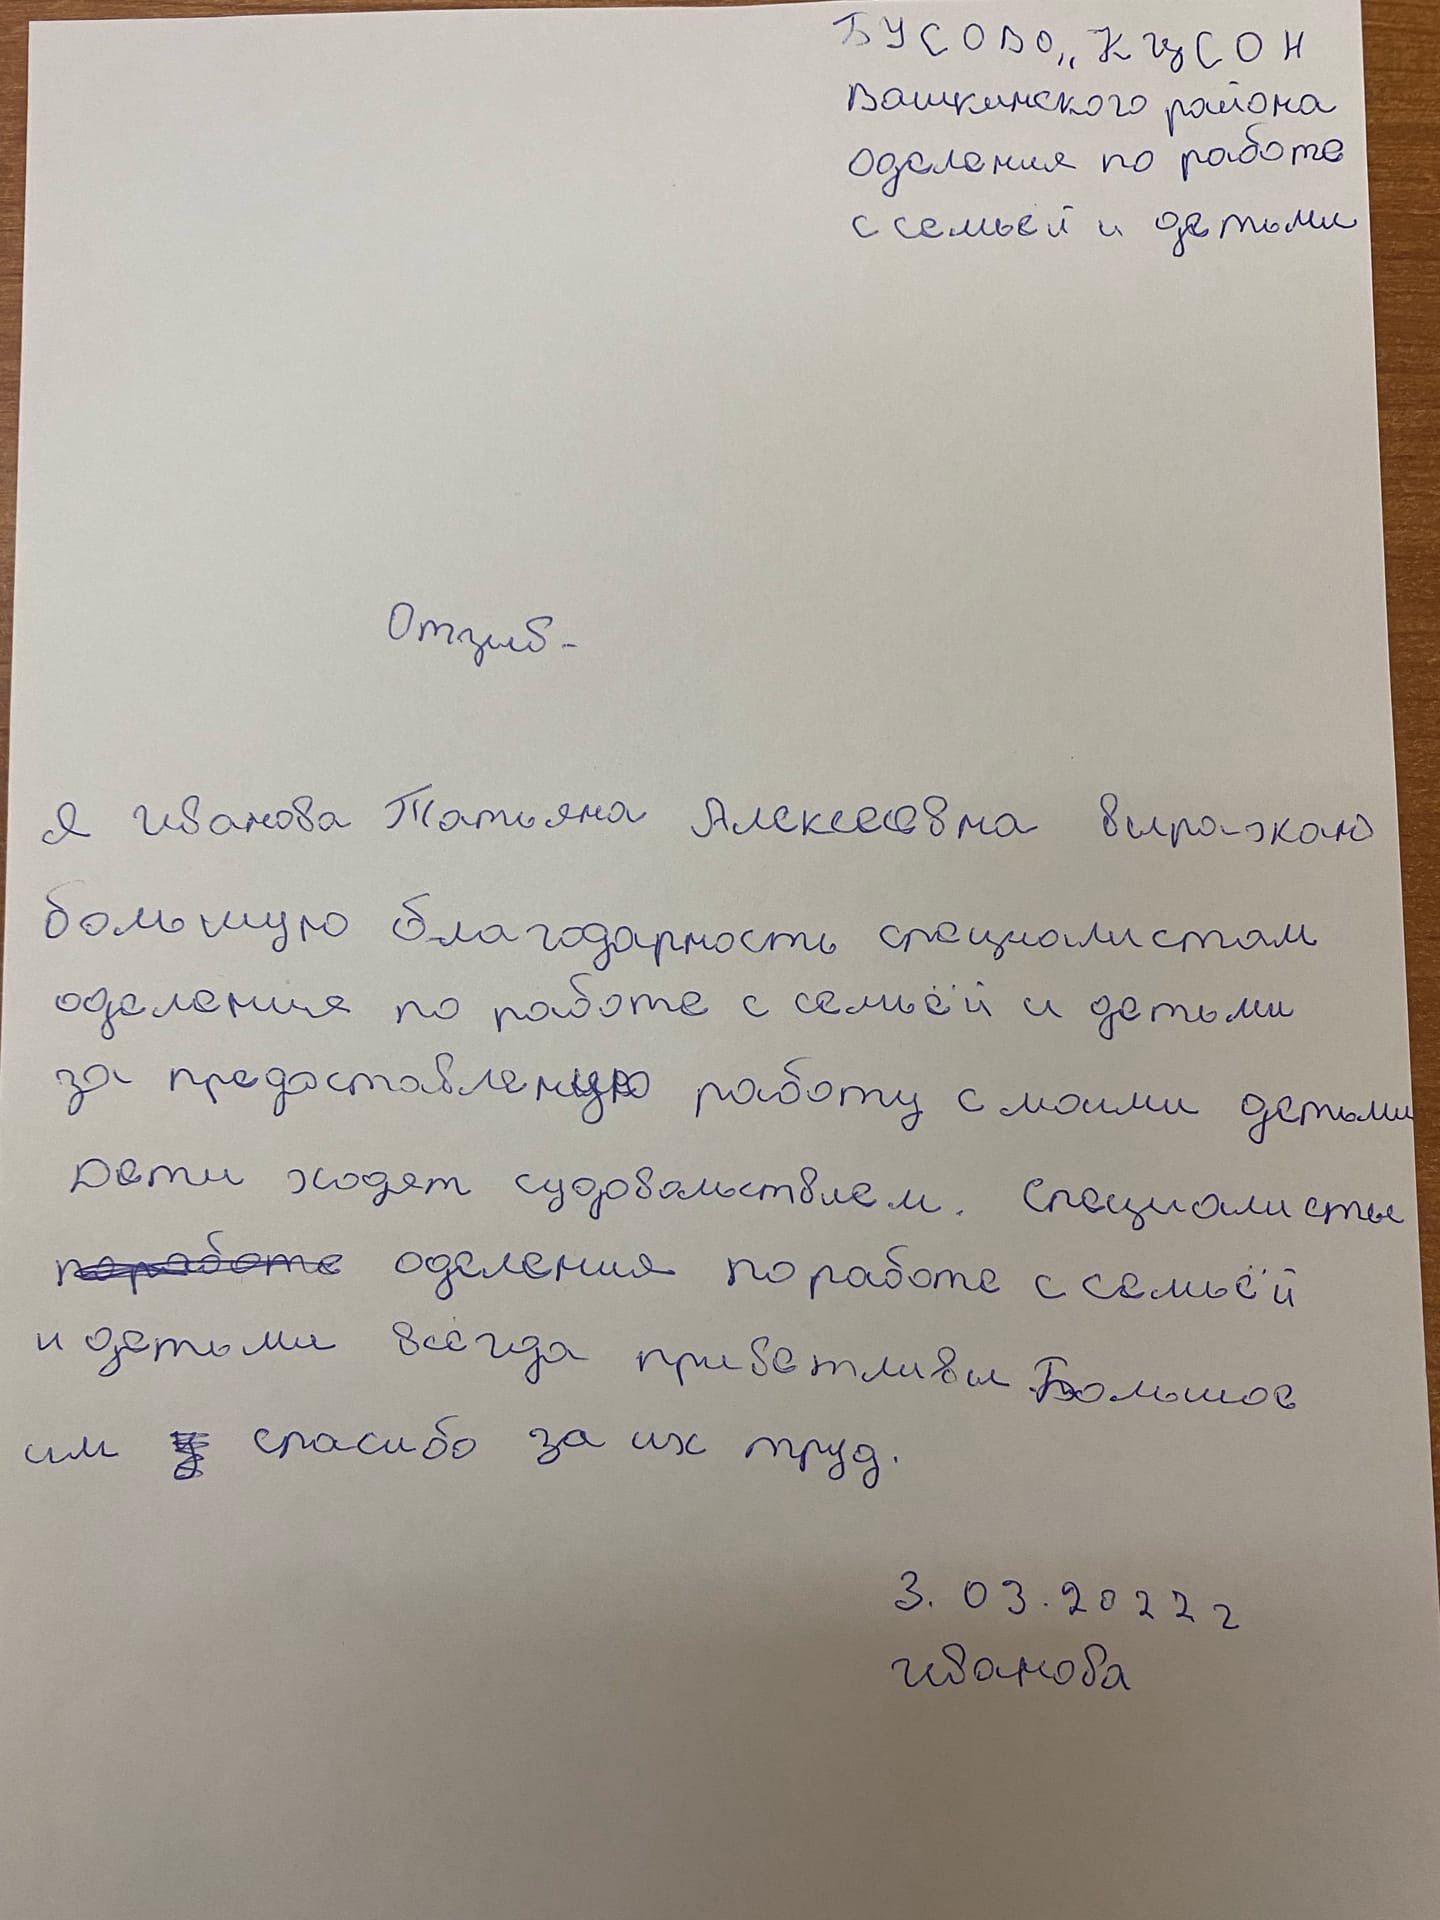 БУСОВО „КЦСОН
Вашкинского района
оделения по работе
с семьей и детьми
Отзыв-
Я Иванова Татьяна Алексеевна выражаю
большую благодарность специалистам
оделения по работе с семьёй и детьми
за предоставленую работу с моими детьми
Дети ходят судовольствием. Специалисты
по работе оделения по работе с семьёй
и детьми всегда приветливы Большое
им спасибо за их труд.
3.03.2022г
Иванова